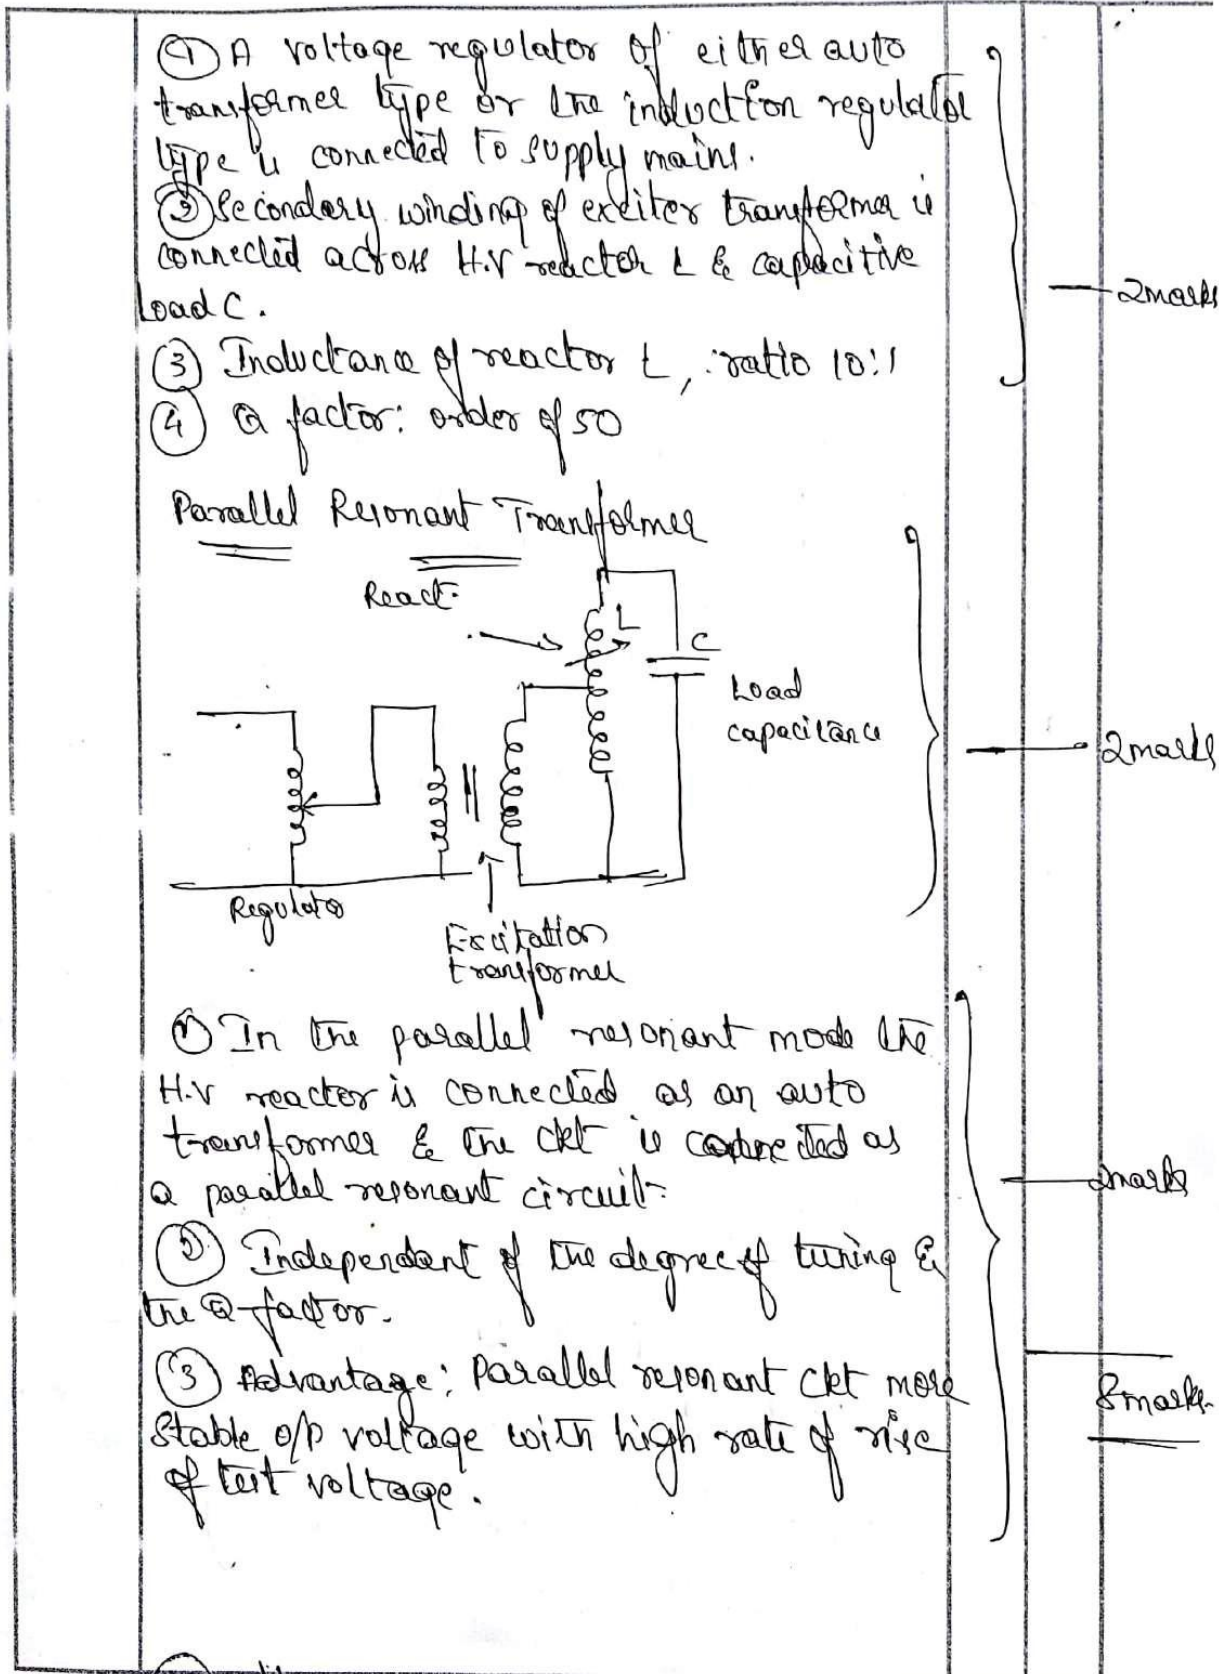 ① A voltage regulator of either auto
transformer type or the induction regulator
type is connected to supply mains.
② Secondary winding of exciter transformer is
connected across H.V reactor L & capacitive
Load C.
2marks
③ Inductance of reactor L, ratio 10:1
④ Q factor: order of 50
Parallel Resonant Transformer
React.
L
C
Load
capacitance
2marks
Regulator
Excitation
transformer
① In the parallel resonant mode the
H.V reactor is connected as an auto
transformer & the ckt is connected as
a parallel resonant circuit.
2marks
② Independent of the degree of tuning &
the Q-factor.
③ Advantage: Parallel resonant ckt more
stable o/p voltage with high rate of rise
of test voltage.
8marks.